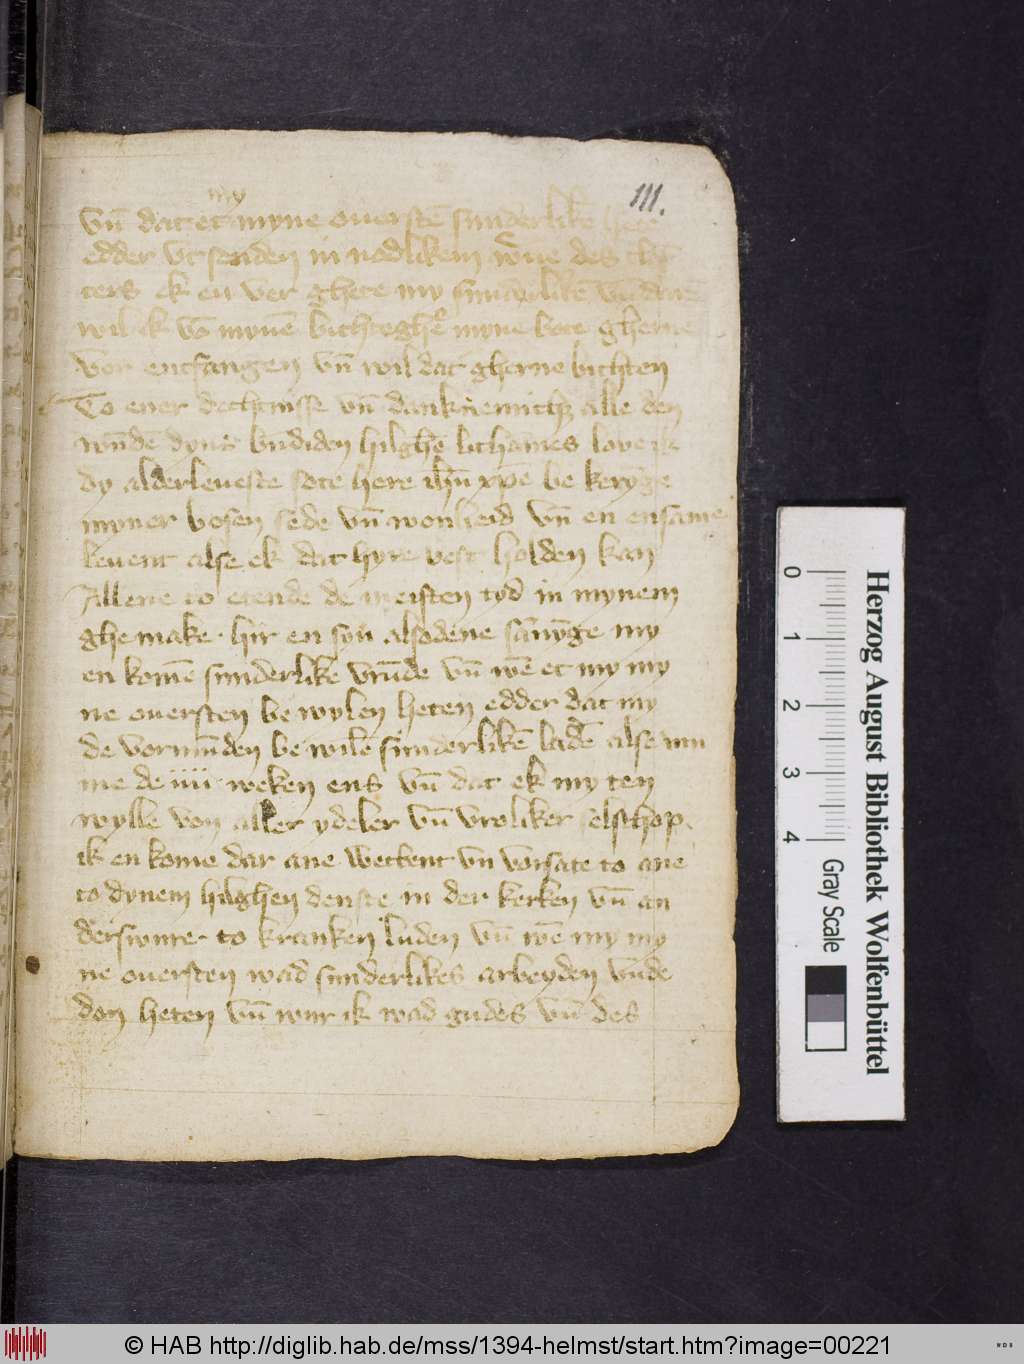 111.
my
vn̄ dat et myne ouerstē sunderlikē hete
edder vt senden in nodlikem w̄ue des clos
ters ek en ver ghete my sunderlikē
wil ik vō mynē bichteghē myne bote gherne
vor entfangen vn̄ wil dat gherne bichten
To ener dechtnisse vn̄ danknemich alle den
wūdē dynes hilghē lichāmes loue ik
dy alderleueste sote here ihū xpē be keryge
myner bosen sede vn̄ wonheid vn̄ en ensame
leuent alse ek dat hyre vest holden kan
Allene to etende de meisten tyd in mynem
ghemake · hir en syn alsodene my
en komē sunderlike vrūde vn̄ wē et my my
ne ouersten be wylen heten edder dat my
de vormūden be wilē sunderlikē ladē alse um
me de iiii weken ens vn̄ dat ek my ten
wylle von aller ydeler vn̄ vroliker selschop
ik en kome dar ane wetkent vn vorsate to ane
to dynem hilghen denste in der kerken vn̄ an
derswure to kranken luden vn̄ wē my my
ne ouersten wad sunderlikes arbeyden vūde
don heten vn̄ wur ik wad gudes vn̄ des
Herzog August Bibliothek Wolfenbüttel
0 1 2 3 4 Gray Scale
© HAB http://diglib.hab.de/mss/1394-helmst/start.htm?image=00221